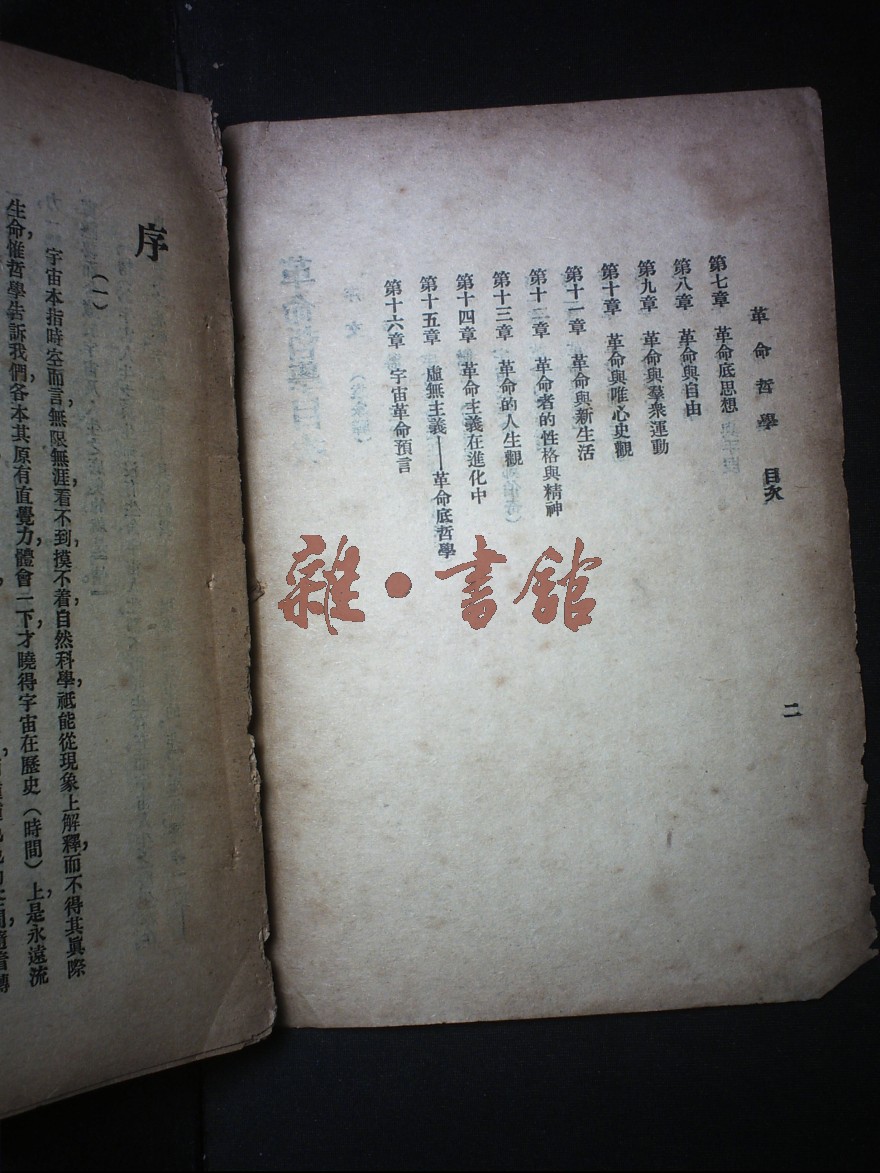 革命哲學 目次
二
第七章 革命底思想
第八章 革命與自由
第九章 革命與羣衆運動
第十章 革命與唯心史觀
第十一章 革命與新生活
第十二章 革命者的性格與精神
第十三章 革命的人生觀
第十四章 革命主義在進化中
第十五章 虛無主義——革命底哲學
第十六章 宇宙革命預言
雜·書館
序
(一)
宇宙本指時空而言,無限無涯,看不到,摸不着,自然科學祇能從現象上解釋,而不得其眞際
生命,惟哲學告訴我們,各本其原有直覺力,體會一下,才曉得宇宙在歷史(時間)上,是永遠流